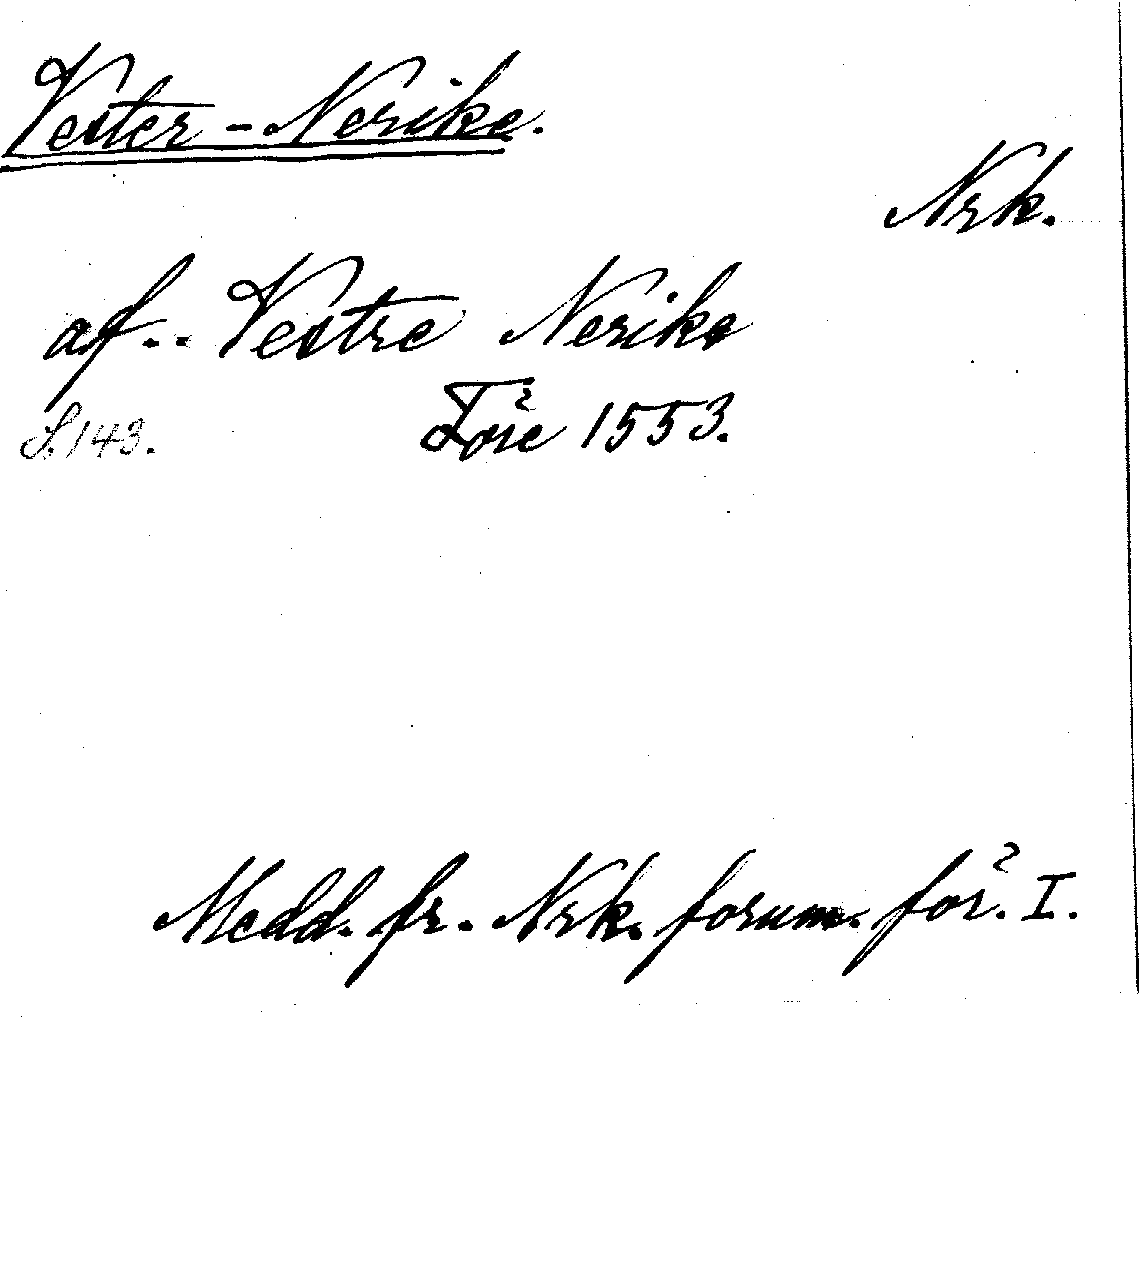 Vester-Nerike.
Nrk.
af.. Vestre Nerike
S. 143. Före 1553.
Medd. fr. Nrk. fornm. för. I.